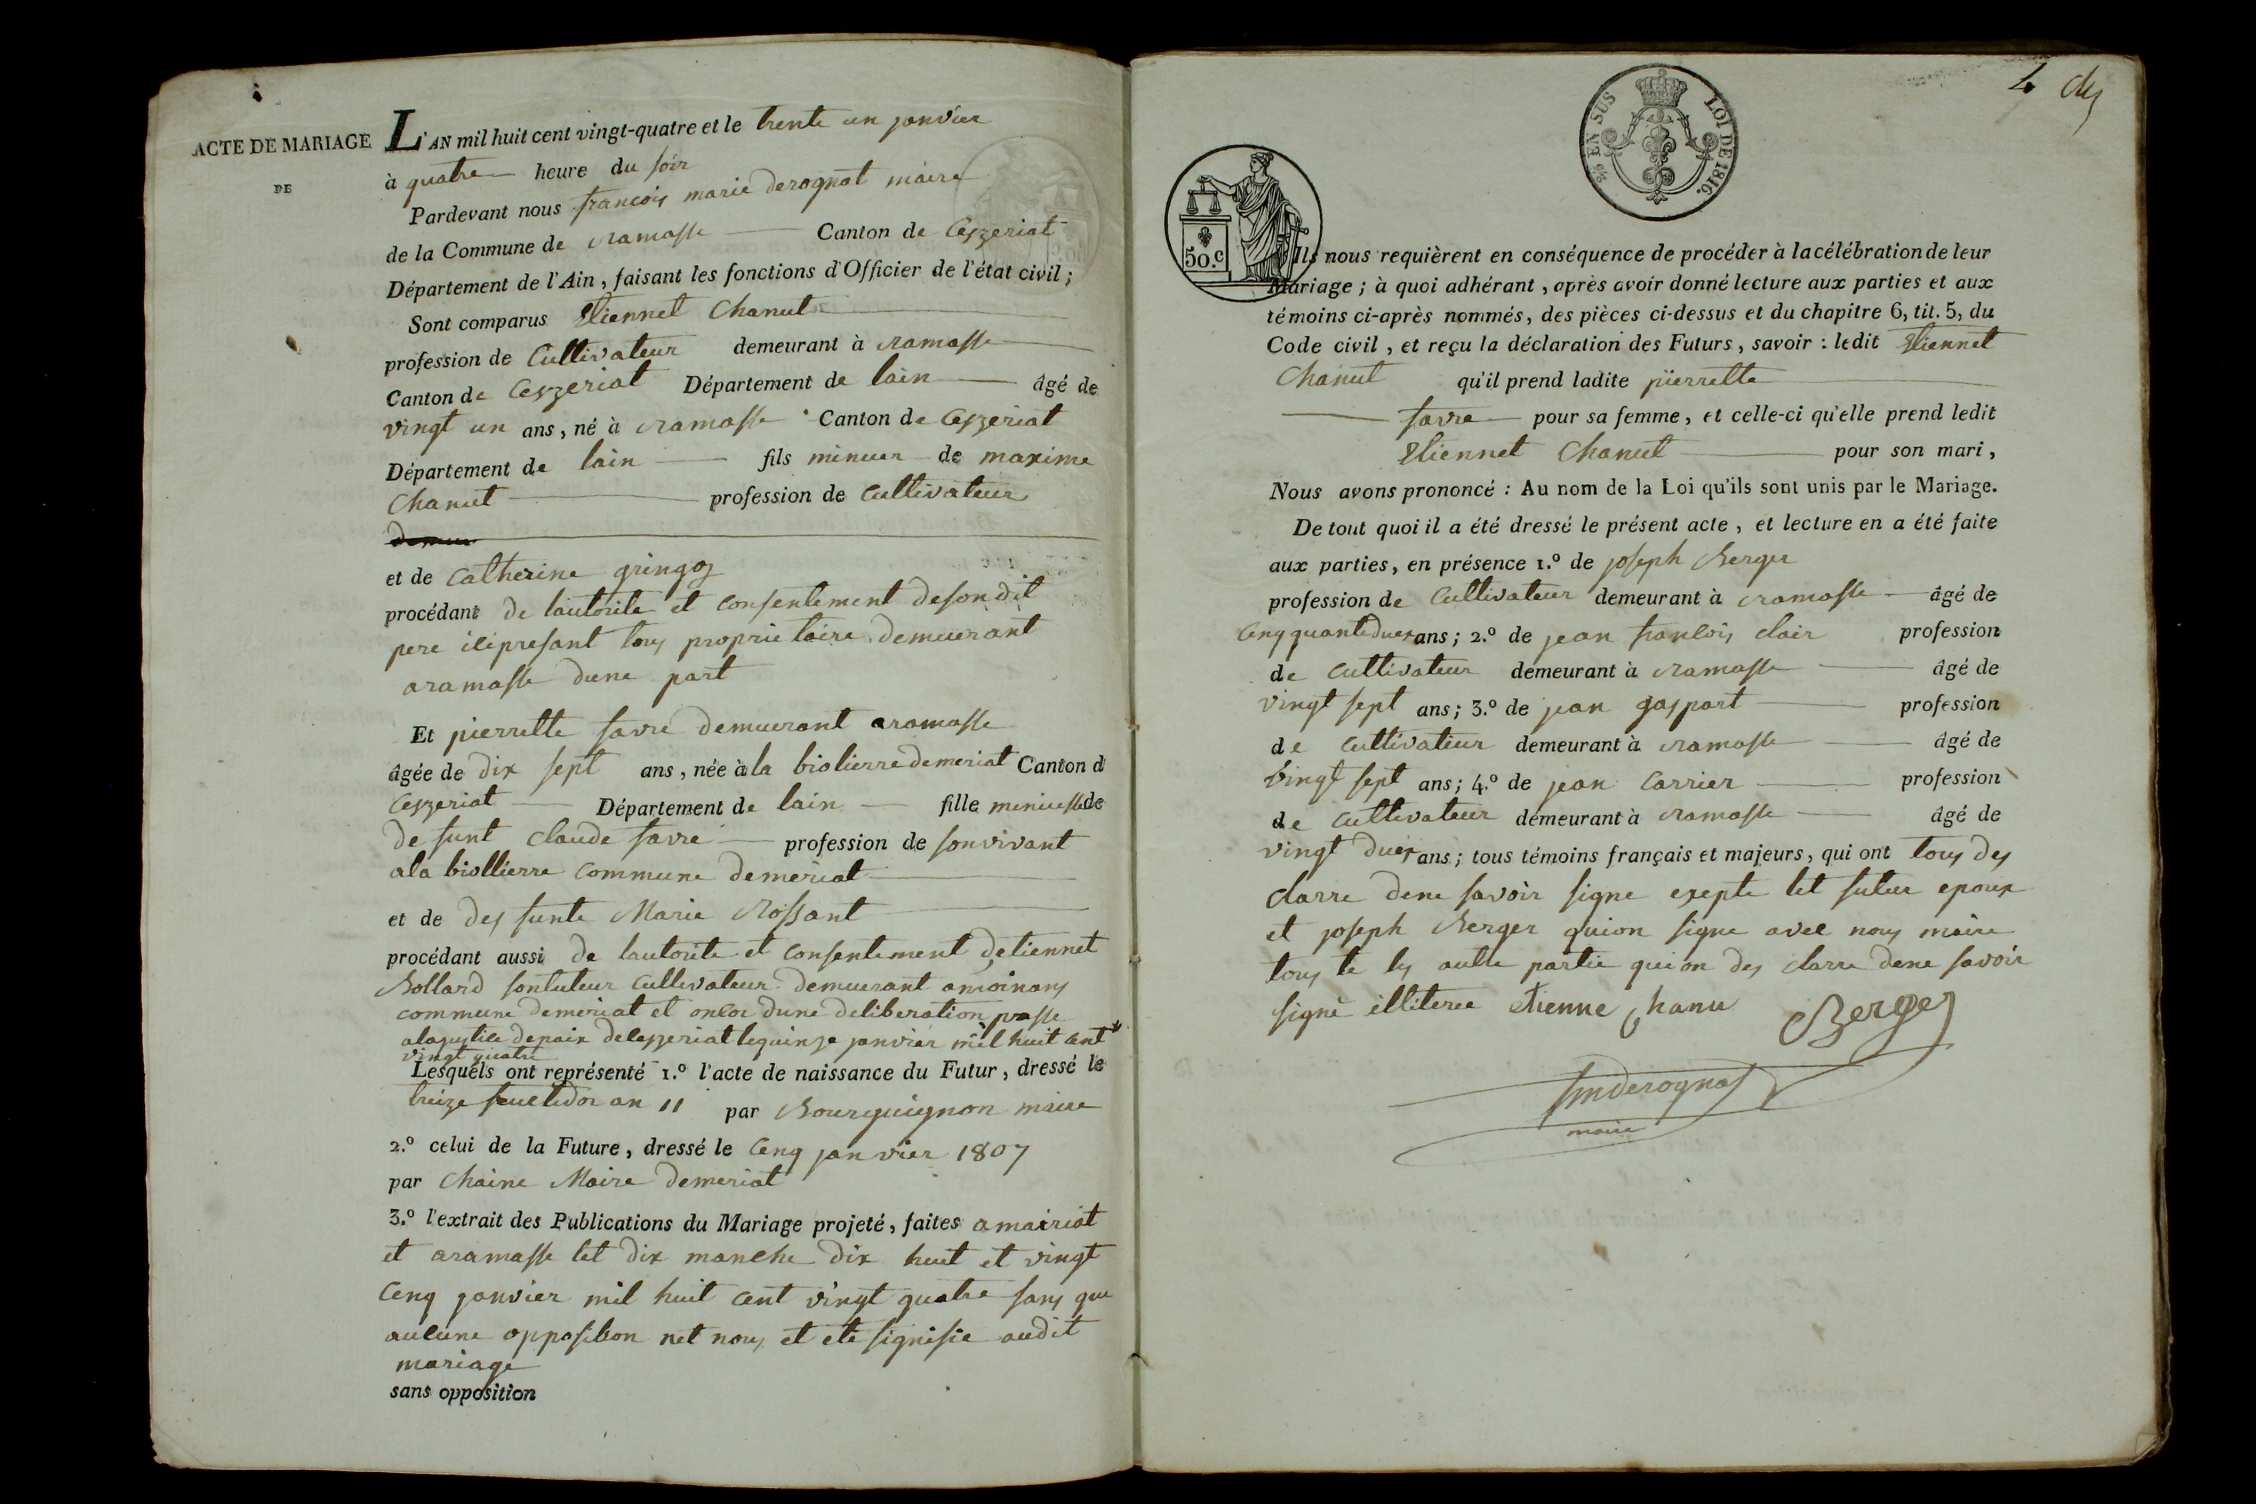 ACTE DE MARIAGE
DE
L'AN mil huit cent vingt-quatre et le trente un janvier
à quatre heure du soir
Pardevant nous francois marie derognat maire
de la Commune de ramasse Canton de Ceyzeriat
Département de l'Ain, faisant les fonctions d'Officier de l'état civil;
Sont comparus Etiennet Chanut
profession de Cultivateur demeurant à ramasse
Canton de Ceyzeriat Département de lain âgé de
vingt un ans, né à ramasse Canton de Ceyzeriat
Département de lain fils minuer de maxime
Chanut profession de Cultivateur
et de Catherine gringoz
procédant de lautorite et consentement desondit
pere icipresant tous proprietaire demeurant
aramasse dune part
Et pierrette favre demeurant aramasse
âgée de dix sept ans, née à la biolierre demeriat Canton d
Ceyzeriat Département de lain fille minuesse de
de funt Claude favre profession de sonvivant
ala biollierre commune demeriat
et de des funte Marie Rossant
procédant aussi de lautorite et consentement detiennet
Bollard sontuteur cultivateur demeurant amoinans
commune demeriat et oncor dune deliberation passe
alajustice depaix deleyzeriat lequinze janvier mil huit cent
vingt quatre
Lesquels ont représenté 1.º l'acte de naissance du Futur, dressé le
treize fructidor an 11 par Bourguignon maire
2.º celui de la Future, dressé le Cenq janvier 1807
par Chaine Maire demeriat
3.º l'extrait des Publications du Mariage projeté, faites amairiat
et aramasse let dix manche dix huit et vingt
Cenq janvier mil huit cent vingt quatre sans que
aucune opposition net nous et ete signifie audit
mariage
sans opposition
4 des
EN SUS LOI DE 1816.
50.c
Ils nous requièrent en conséquence de procéder à la célébration de leur
Mariage; à quoi adhérant, après avoir donné lecture aux parties et aux
témoins ci-après nommés, des pièces ci-dessus et du chapitre 6, tit. 5, du
Code civil, et reçu la déclaration des Futurs, savoir: ledit Etiennet
Chanut qu'il prend ladite pierrette
favre pour sa femme, et celle-ci qu'elle prend ledit
Etiennet Chanut pour son mari,
Nous avons prononcé: Au nom de la Loi qu'ils sont unis par le Mariage.
De tout quoi il a été dressé le présent acte, et lecture en a été faite
aux parties, en présence 1.º de joseph Berger
profession de Cultivateur demeurant à ramasse âgé de
Cenq quante duex ans; 2.º de jean francois clair profession
de cultivateur demeurant à ramasse âgé de
vingt sept ans; 3.º de jean gaspart profession
de cultivateur demeurant à ramasse âgé de
vingt sept ans; 4.º de jean Carrier profession
de cultivateur demeurant à ramasse âgé de
vingt duex ans; tous témoins français et majeurs, qui ont tous des
clarre dene savoir signe exepte let futur epoux
et joseph Berger quion signe avec nous maire
tous te les autte partie quion des clarre dene savoir
signé illiteree etienne Chanu Berger
fmderognat
maire